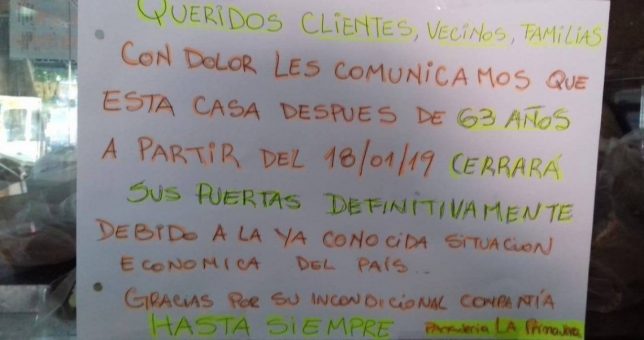 QUERIDOS CLIENTES, VECINOS, FAMILIAS
CON DOLOR LES COMUNICAMOS QUE
ESTA CASA DESPUES DE 63 AÑOS
A PARTIR DEL 18/01/19 CERRARÁ
SUS PUERTAS DEFINITIVAMENTE
DEBIDO A LA YA CONOCIDA SITUACION
ECONOMICA DEL PAÍS..
GRACIAS POR SU INCONDICIONAL COMPAÑÍA
HASTA SIEMPRE Panaderia LA Primavera